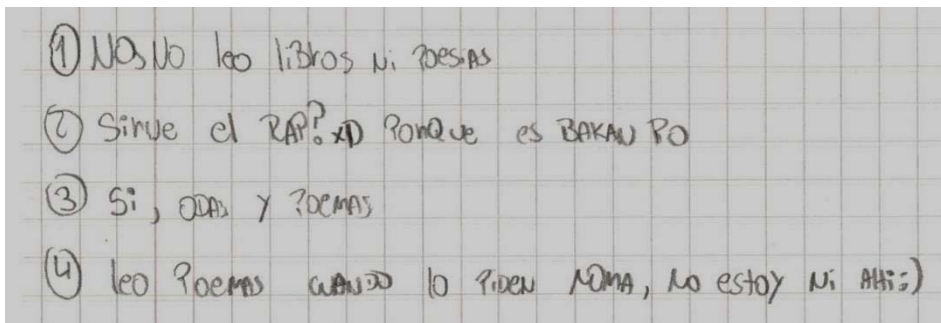 ① NO, NO leo liBros Ni POESiAS
② Sirve el RAP? XD PorQue es BAKAN PO
③ Si, ODAS Y POEMAS
④ leo POEMAS CUANDO lo PiDEN NOMA, No estoy Ni AHi :)